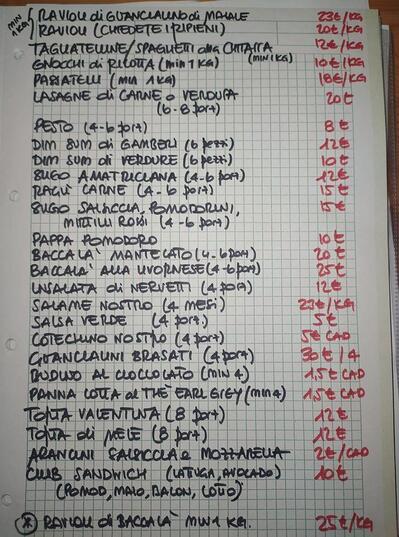 MIN 1KG
RAVIOLI di GUANCIALINO di MAIALE 23€/KG
RAVIOLI (CHIEDETE I RIPIENI) 20€/KG
TAGLIATELLINE/SPAGHETTI alla CHITARRA (MIN 1KG) 12€/KG
GNOCCHI di RICOTTA (min 1 KG) 10€/KG
PASSATELLI (MIN 1KG) 18€/KG
LASAGNE di CARNE o VERDURA 20€
(6-8 port)
PESTO (4-6 port) 8€
DIM SUM di GAMBERI (6 pezzi) 12€
DIM SUM di VERDURE (6 pezzi) 10€
SUGO AMATRICIANA (4-6 port) 12€
RAGÙ CARNE (4-6 port) 15€
SUGO SALSICCIA, POMODORINI, 15€
MIRTILLI ROSSI (4-6 port)
PAPPA POMODORO 10€
BACCALA' MANTECATO (4-6 port) 20€
BACCALA' ALLA LIVORNESE (4-6 port) 25€
INSALATA di NERVETTI (4 port) 12€
SALAME NOSTRO (4 MESI) 23€/KG
SALSA VERDE (4 port) 5€
COTECHINO NOSTRO (4 port) 5€ CAD
GUANCIALINI BRASATI (4 port) 30€/4
BUDINO AL CIOCCOLATO (MIN 4) 1,5€ CAD
PANNA COTTA al THÈ EARL GREY (MIN 4) 1,5€ CAD
TORTA VALENTINA (8 port) 12€
TORTA di MELE (8 port) 12€
ARANCINI SALSICCIA e MOZZARELLA 2€/CAD
CLUB SANDWICH (LATTUGA, AVOCADO) 10€
(POMOD, MAIO, BACON, COTTO)
* RAVIOLI di BACCALA' MIN 1 KG. 25€/KG